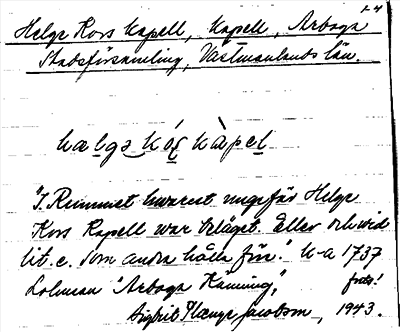 Helge Kors kapell, kapell, Arboga
Stadsförsamling, Västmanlands län.
hælgə kórs kàpel
"I Rummet hwarest ungefär Helge
Kors Kapell war beläget. Eller ock wid
lit. e. som andra hålla före." 1737
Lohman "Arboga Känning",
Sigbrit Plænge Jacobson, 1943.